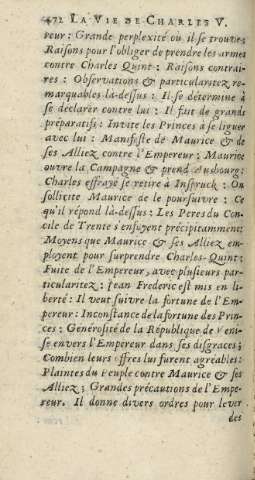 472 LA VIE DE CHARLES V.
reur: Grande perplexité où il se trouve:
Raisons pour l'obliger de prendre les armes
contre Charles Quint: Raisons contrai-
res: Observations & particularitez re-
marquables là-dessus: Il se détermine à
se déclarer contre lui: Il fait de grands
préparatifs: Invite les Princes à se liguer
avec lui: Manifeste de Maurice & de
ses Alliez contre l'Empereur; Maurice
ouvre la Campagne & prend Ausbourg:
Charles effrayé se retire à Inspruck: On
sollicite Maurice de le poursuivre: Ce
qu'il répond là-dessus: Les Peres du Con-
cile de Trente s'enfuyent précipitamment:
Moyens que Maurice & ses Alliez em-
ployent pour surprendre Charles-Quint:
Fuite de l'Empereur, avec plusieurs par-
ticularitez: Jean Frederic est mis en li-
berté: Il veut suivre la fortune de l'Em-
pereur: Inconstance de la fortune des Prin-
ces: Générosité de la République de Veni-
se envers l'Empereur dans ses disgraces;
Combien leurs offres lui furent agreables:
Plaintes du Peuple contre Maurice & ses
Alliez; Grandes précautions de l'Empe-
reur. Il donne divers ordres pour lever
des